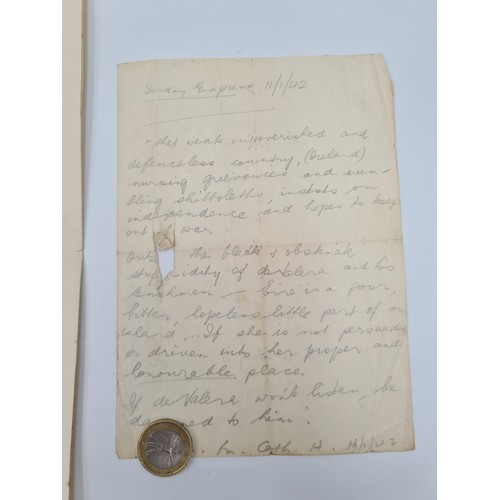 Sunday Express 11/1/42
"that weak, impoverished and
defenceless country, (Ireland)
nursing grievances and mum-
bling shibboleths, insists on
independence, and hopes to keep
out war.
the black & obstinate
stupidity of de Valera and his
henchmen — Eire is a poor,
bitter, hopeless little part of an
If she is not persuaded
or driven into her proper and
honourable place.
If de Valera won't listen, be
to him".
Cath. H.